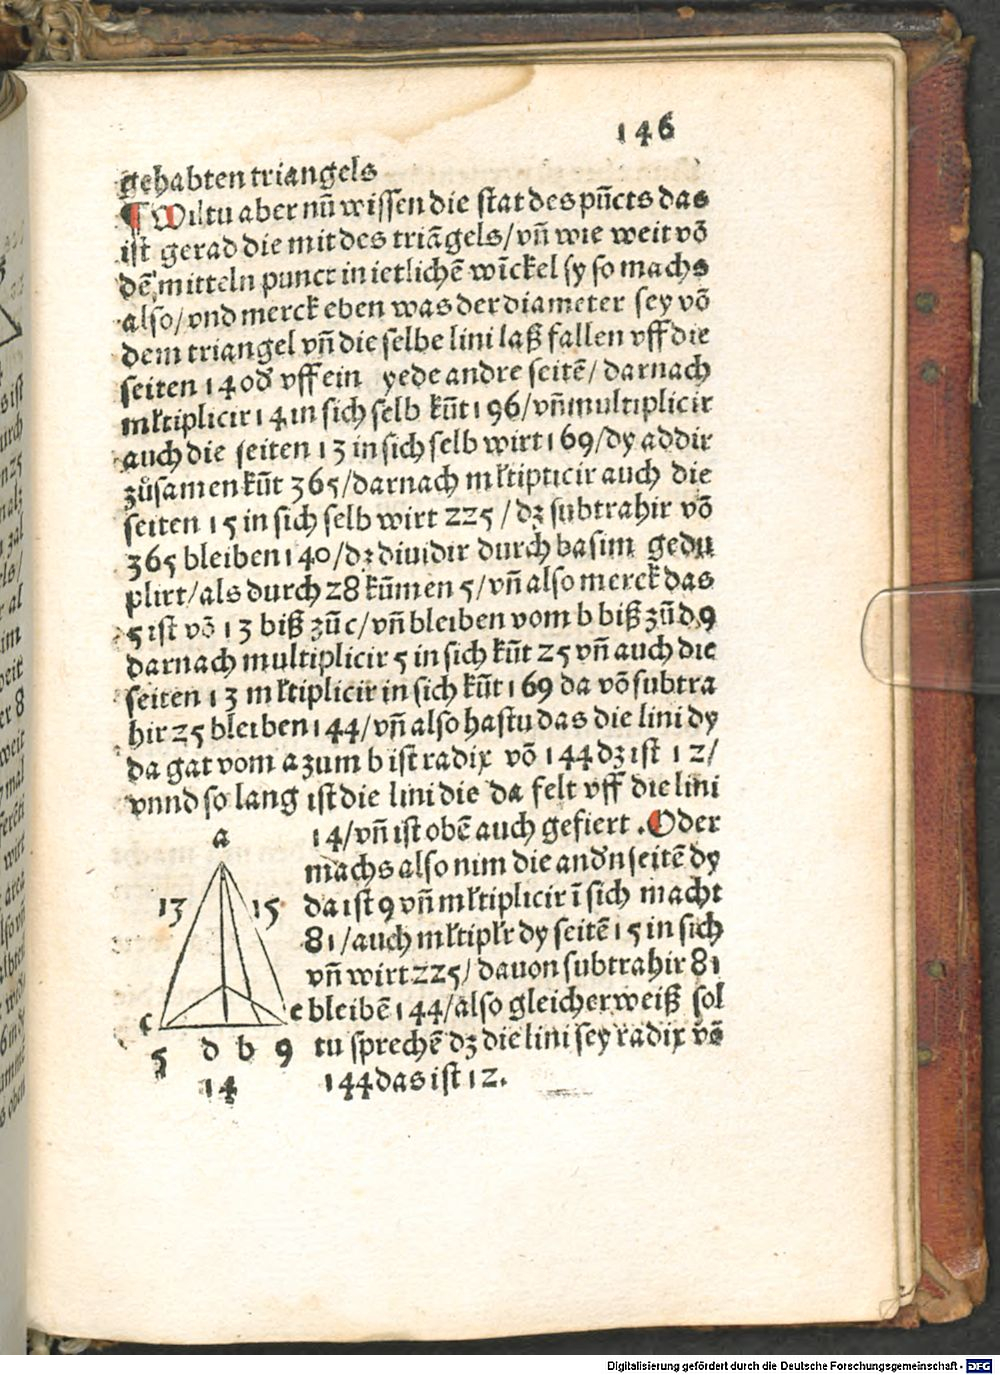 146
gehabten triangels
¶ Wiltu aber nū wissen die stat des pūcts das
ist gerad die mit des triāgels/ vñ wie weit vō
dē mitteln punct in ietlichē wīckel sy so machs
also/ vnd merck eben was der diameter sey vō
dem triangel vñ die selbe lini laß fallen vff die
seiten 14 od̕ vff ein yede andre seitē/ darnach
mk̄tiplicir 14 in sich selb kūt 196/ vñ multiplicir
auch die seiten 13 in sich selb wirt 169/ dy addir
zůsamen kūt 365/ darnach mk̄tipticir auch die
seiten 15 in sich selb wirt 225 / dz subtrahir vō
365 bleiben 140/ dz diuidir durch basim gedu
plirt/ als durch 28 kūmen 5/ vñ also merck das
5 ist vō 13 biß zū c/ vñ bleiben vom b biß zū d 9
darnach multiplicir 5 in sich kūt 25 vñ auch die
seiten 13 mk̄tiplicir in sich kūt 169 da vō subtra
hir 25 bleiben 144/ vñ also hastu das die lini dy
da gat vom a zum b ist radix vō 144 dz ist 12/
vnnd so lang ist die lini die da felt vff die lini
14/ vñ ist obē auch gefiert . Oder
machs also nim die and̕n seitē dy
da ist 9 vñ mk̄tiplicir ī sich macht
81/ auch mk̄tipk̄r dy seitē 15 in sich
vñ wirt 225/ dauon subtrahir 81
bleibē 144/ also gleicher weiß sol
tu sprechē dz die lini sey radix vō
144 das ist 12.
a
13 15
c e
5 d b 9
14
Digitalisierung gefördert durch die Deutsche Forschungsgemeinschaft - DFG